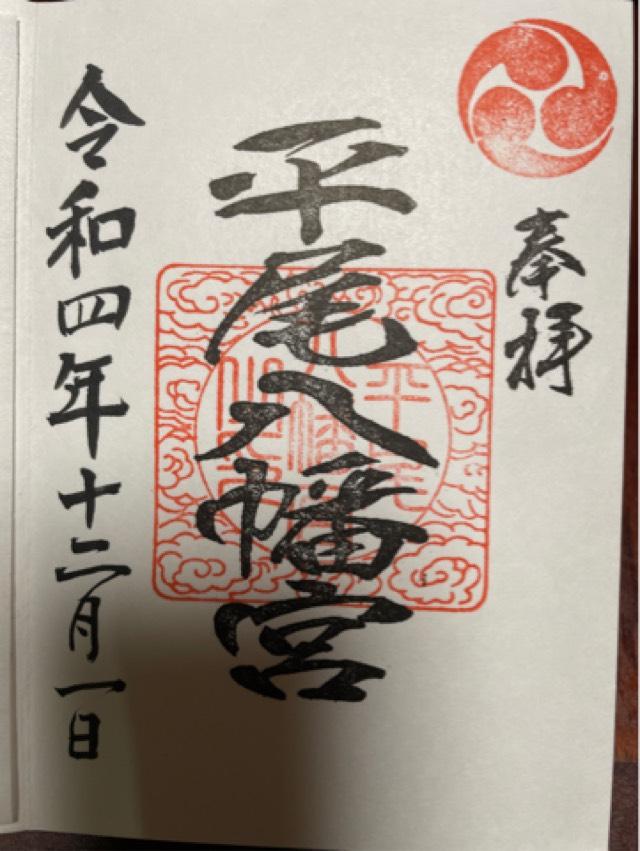 奉拝
平尾八幡宮
令和四年十二月一日